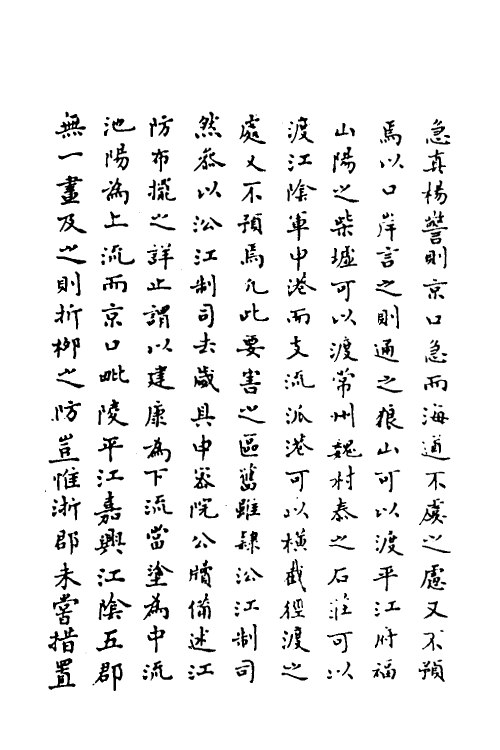 急真楊警則京口急而海道不虞之慮又不預
焉以口岸言之則通之狼山可以渡平江府福
山陽之柴墟可以渡常州魏村泰之石莊可以
渡江陰軍申港而支流派港可以橫截徑渡之
處又不預焉凡此要害之區舊雖隸沿江制司
然叅以沿江制司去歲具申密院公牘備述江
防布擺之詳止謂以建康為下流當塗為中流
池陽為上流而京口毗陵平江嘉興江陰五郡
無一畫及之則折栁之防豈惟浙郡未嘗措置